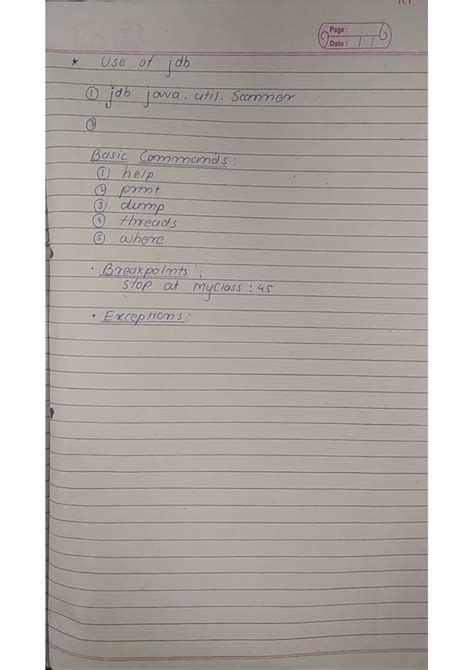 Page :
Date : / /
* Use of jdb
① jdb java. util. Scanner
②
Basic Commands :
① help
② print
③ dump
④ threads
⑤ where
• Breakpoints :
stop at MyClass : 45
• Exceptions :